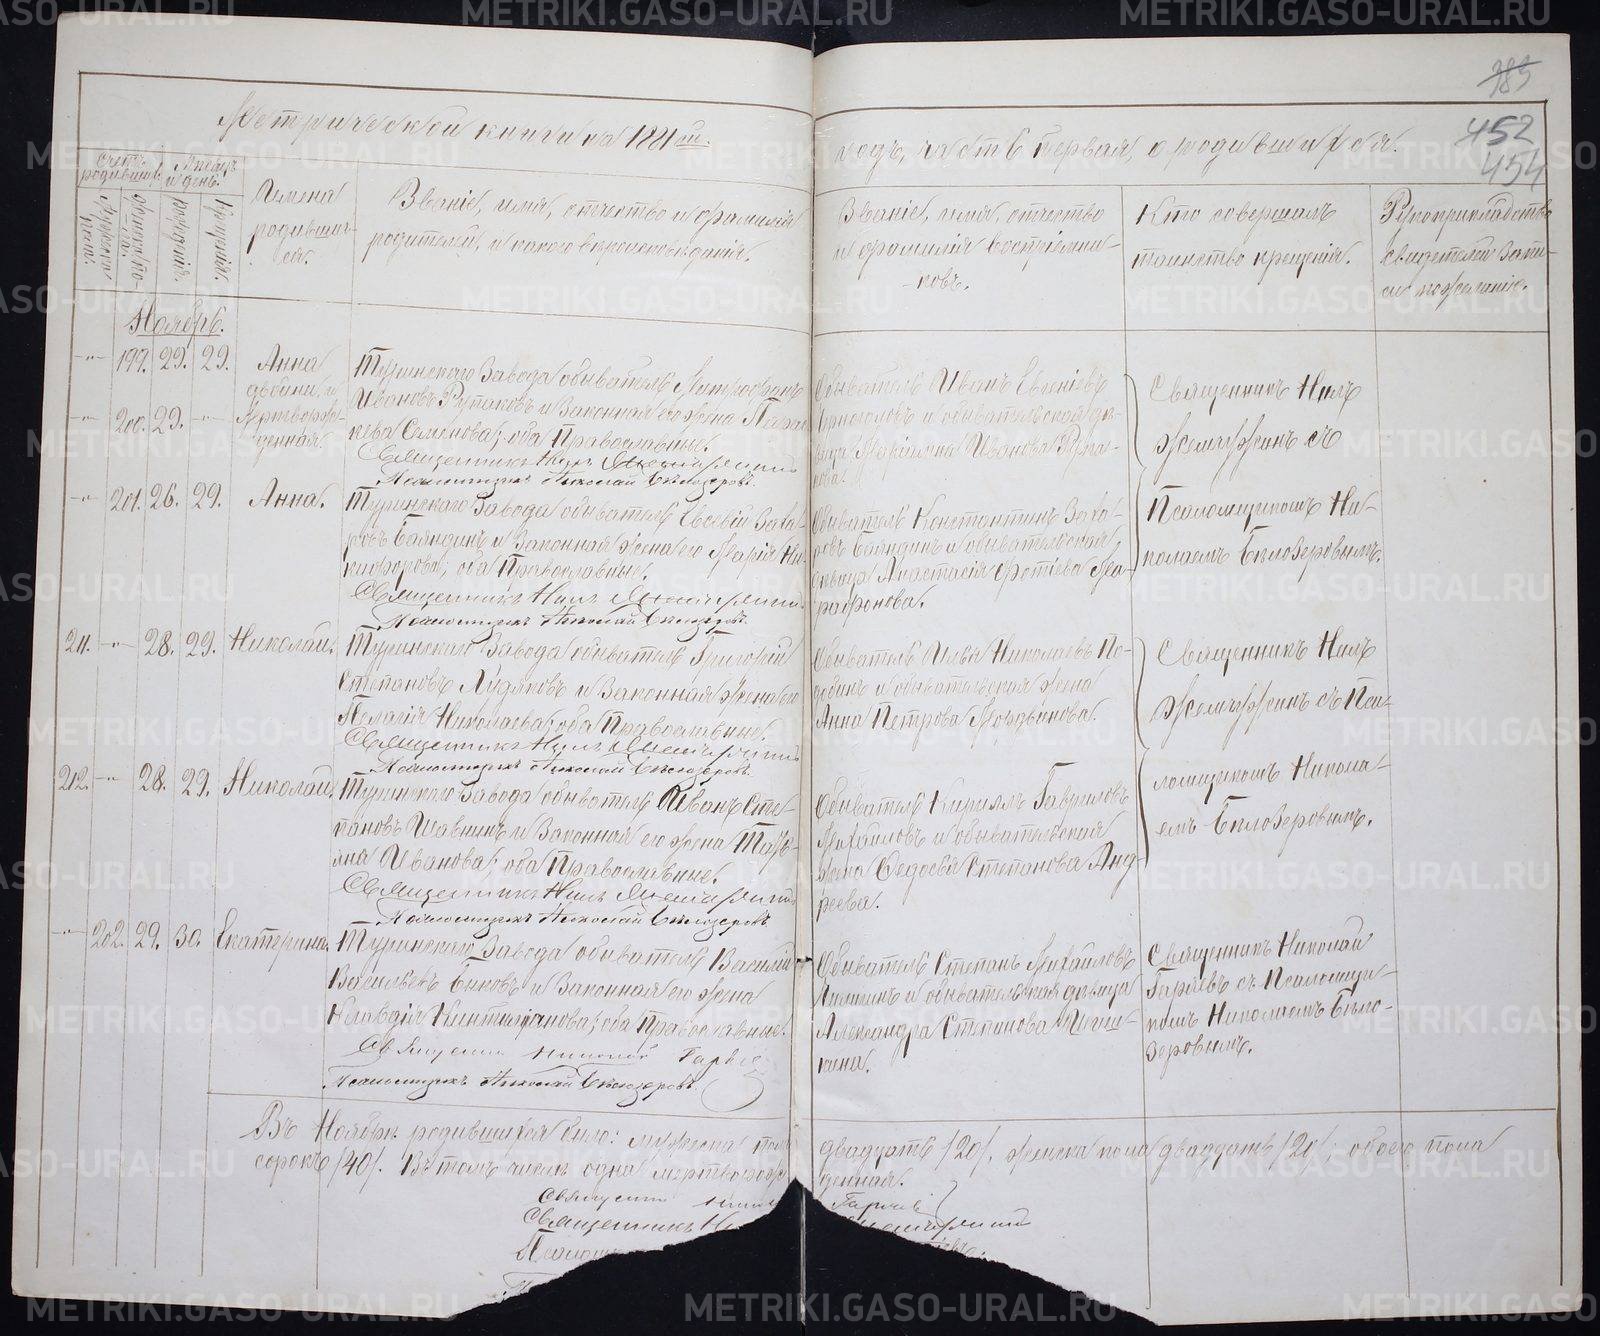 385
452
454
Метрической книги на 1881й.
годъ, часть первая, о родившихся.
Счетъ родивших.
Мѣсяцъ и день.
Мужеска пола.
Женска пола.
Рожденія.
Крещенія.
Имена
родивших-
ся.
Званіе, имя, отчество и фамилія
родителей, и какого вѣроисповѣданія.
Званіе, имя, отчество
и фамилія воспріемни-
ковъ.
Кто совершалъ
таинство крещенія.
Рукоприкладство
свидѣтелей запи-
си по желанію.
Ноябрь.
-"- 199. 29. 29. Анна
двойни, и
-"- 200. 29. -"- Мертворож-
денная.
Туринскаго Завода обыватель Митрофанъ
Ивановъ Рупаковъ и Законная его жена Параc-
кева Семенова; оба Православные.
Священникъ Нилъ
Псаломщикъ Николай Бѣлозеровъ.
Обыватель Иванъ Евгеніевъ
Черноголовъ и обывательская дѣ-
вица Маріамна Иванова Рупа-
кова.
Священникъ Нилъ
Жемчужинъ съ
Псаломщикомъ Ни-
колаемъ Бѣлозеровымъ.
-"- 201. 26. 29. Анна.
Туринскаго Завода обыватель Евсевій Заха-
ровъ Баяндинъ и Законная жена его Марія Ни-
кифорова; оба Православные.
Священникъ Нилъ
Псаломщикъ Николай Бѣлозеровъ.
Обыватель Константинъ Заха-
ровъ Баяндинъ и обывательская
дѣвица Анастасія Фотіева Ага-
фонова.
211. -"- 28. 29. Николай.
Туринскаго Завода обыватель Григорій
Степановъ Лудяковъ и Законная жена его
Пелагія Николаева; оба Православные.
Священникъ Нилъ
Псаломщикъ Николай Бѣлозеровъ.
Обыватель Илья Николаевъ По-
добинъ и обывательская жена
Анна Петрова Мордвинова.
Священникъ Нилъ
Жемчужинъ съ Пса-
ломщикомъ Никола-
емъ Бѣлозеровымъ.
212. -"- 28. 29. Николай.
Туринскаго Завода обыватель Иванъ Сте-
пановъ Шавнинъ и Законная его жена Тать-
яна Иванова; оба Православные.
Священникъ Нилъ
Псаломщикъ Николай Бѣлозеровъ.
Обыватель Кириллъ Гавриловъ
Михайловъ и обывательская
жена Федосья Степанова Анд-
реева.
-"- 202. 29. 30. Екатерина.
Туринскаго Завода обыватель Василій
Васильевъ Быковъ и Законная его жена
Клавдія Кинтиліанова; оба Православные.
Священникъ Николай Гаряевъ
Псаломщикъ Николай Бѣлозеровъ.
Обыватель Степанъ Михайловъ
и обывательская дѣвица
Александра Степанова
Священникъ Николай
Гаряевъ съ Псаломщи-
комъ Николаемъ Бѣло-
зеровымъ.
Въ Ноябрѣ родившихся было: мужеска пола двадцать /20/, женска пола двадцать /20/; обоего пола
сорокъ /40/. Въ томъ числѣ одна мертворож-
денная.
Священникъ Гаряевъ
Священникъ